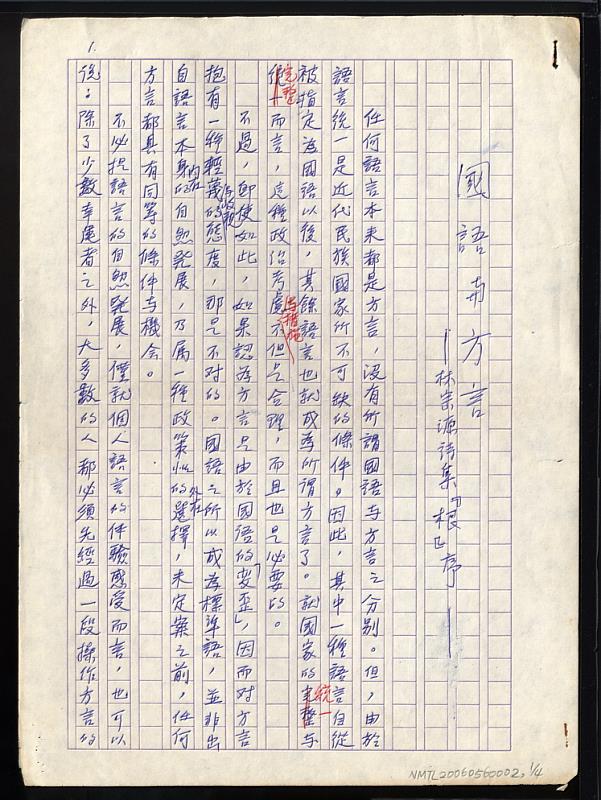 1.
國語與方言
—林宗源詩集『根』序—
任何語言本來都是方言，沒有所謂國語与方言之分别。但，由於
語言統一是近代民族國家所不可缺的條件。因此，其中一種語言自從
被指定為國語以後，其餘語言也就成為所谓方言了。就國家的統一与
完整而言，這種政治考慮与措施不但是合理，而且也是必要的。
不過，即使如此，如果認為方言是由於國語的「变歪」，因而对方言
抱有一種輕蔑与歧視的態度，那是不对的。國語之所以成為標準語，並非出
自語言本身的内在自然発展，乃属一種政策性的外在選擇，未定案之前，任何
方言都具有同等的條件与機会。
不必提語言的自然発展，僅就個人語言的体驗感受而言，也可以
後：除了少數幸運者之外，大多數的人都必須先經過一段操作方言的
NMTL20060560002, 1/4